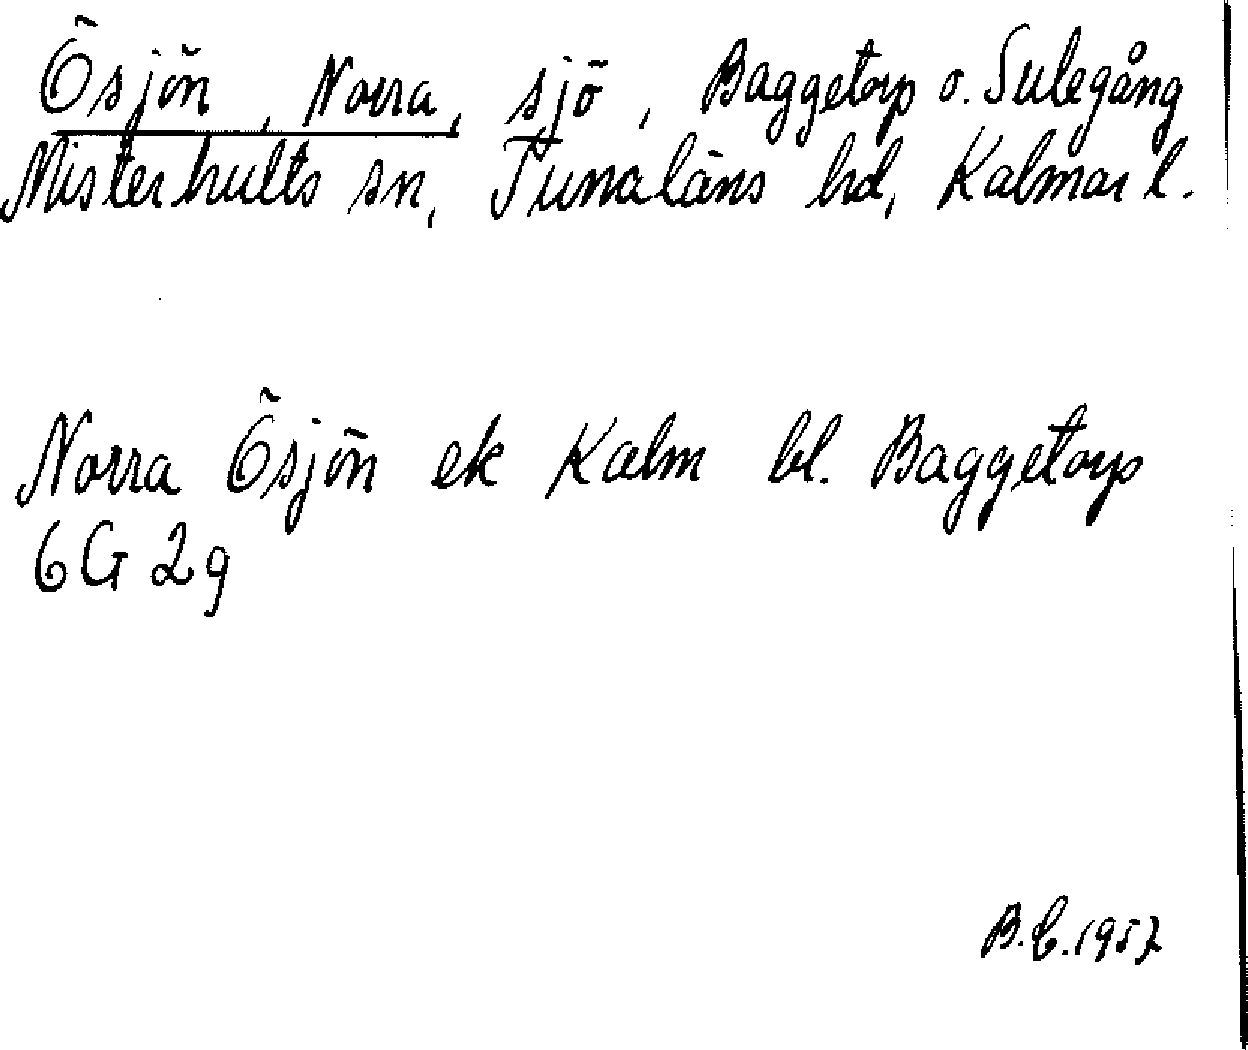 Ösjön, Norra, sjö, Baggetorp o. Sulegång
Misterhults sn, Tunaläns hd, Kalmar l.
Norra Ösjön ek Kalm bl. Baggetorp
6G 2g
B.E. 1957